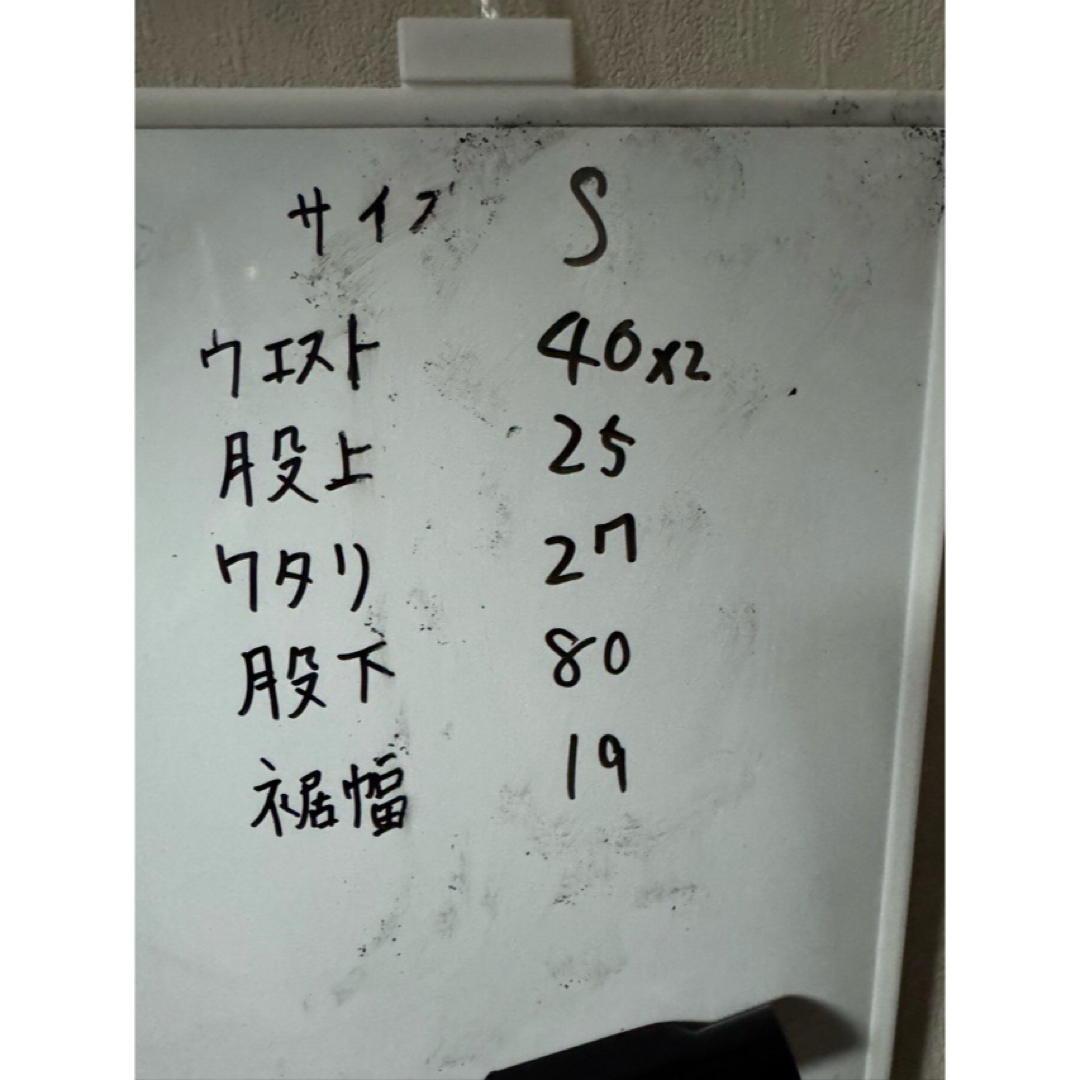 サイズ S
ウエスト 40x2
股上 25
ワタリ 27
股下 80
裾幅 19